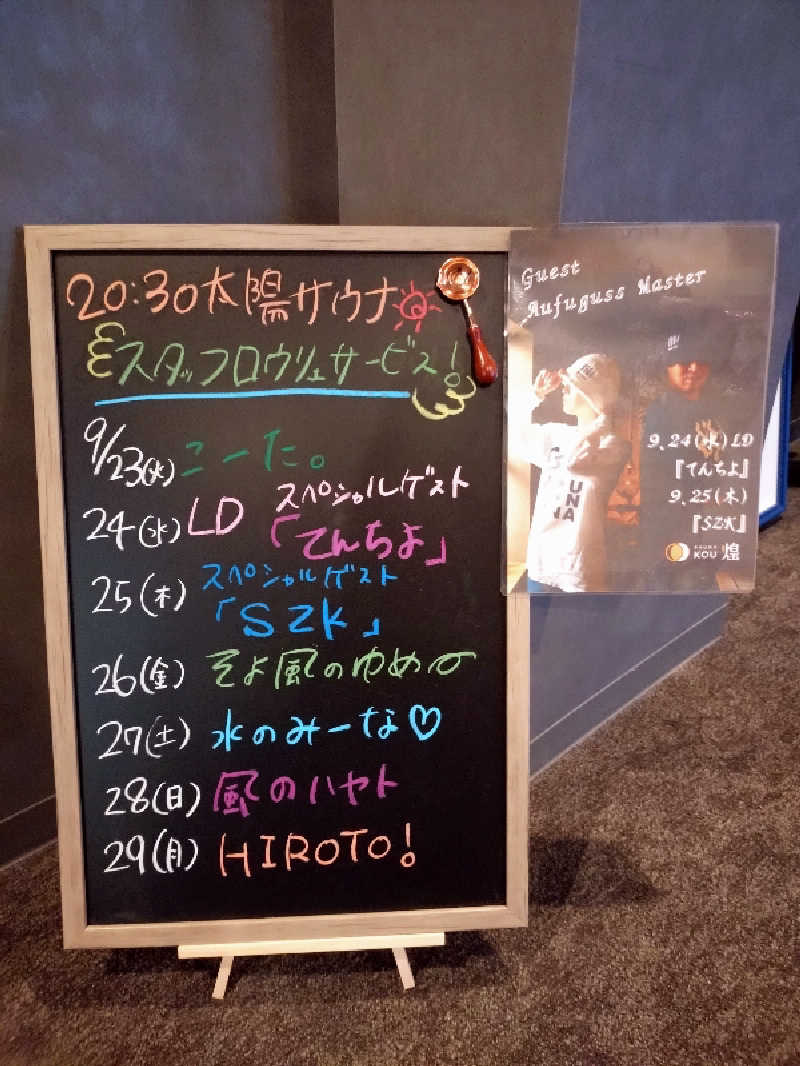 20:30太陽サウナ
スタッフロウリュサービス!
9/23(火) こーた。
24(水) LD スペシャルゲスト
「てんちよ」
25(木) スペシャルゲスト
「SZK」
26(金) そよ風のゆめの
27(土) 水のみーな♡
28(日) 風のハヤト
29(月) HIROTO!
Guest
Aufuguss Master
9.24(水)LD
『てんちよ』
9.25(木)
『SZK』
KOU 煌
UNA